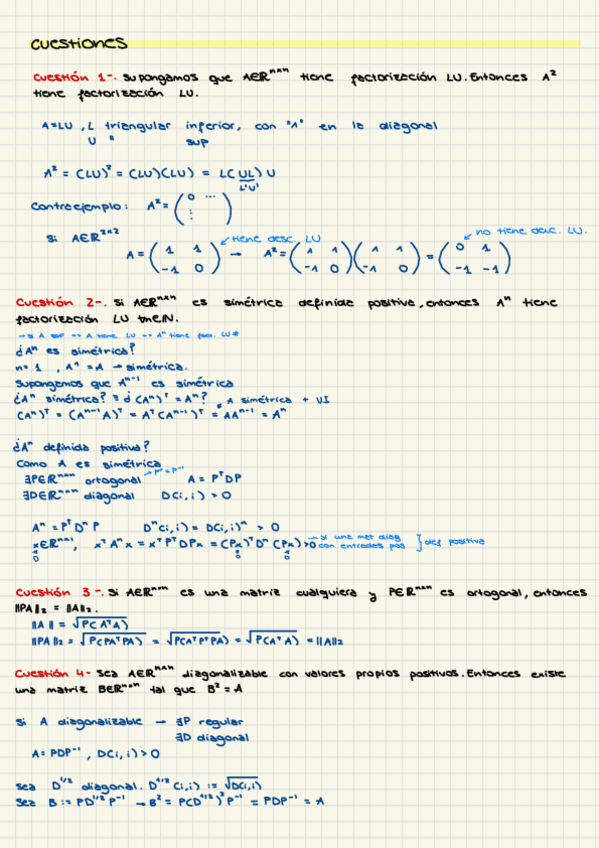 cuestiones
Cuestión 1-. Supongamos que A∈ℝⁿˣⁿ tiene factorización LU. Entonces A²
tiene factorización LU.
A=LU , L triangular inferior, con "1" en la diagonal
U " sup
A² = (LU)² = (LU)(LU) = L(UL)U
L'U'
Contraejemplo: A² = (0 ... ⋮ )
Si A∈ℝ²ˣ² ↙tiene desc. LU ↙ no tiene desc. LU.
A = (1 1 -1 0) → A² = (1 1 -1 0)(1 1 -1 0) = (0 1 -1 -1)
Cuestión 2-. Si A∈ℝⁿˣⁿ es simétrica definida positiva, entonces Aⁿ tiene
factorización LU ∀n∈ℕ.
¿Aⁿ es simétrica?
n=1 , A¹ = A → simétrica.
Supongamos que Aⁿ⁻¹ es simétrica
¿Aⁿ simétrica? ≡ ¿(Aⁿ)ᵀ = Aⁿ? A simétrica + UI
(Aⁿ)ᵀ = (Aⁿ⁻¹A)ᵀ = Aᵀ(Aⁿ⁻¹)ᵀ = AAⁿ⁻¹ = Aⁿ
¿Aⁿ definida positiva?
Como A es simétrica
∃P∈ℝⁿˣⁿ ortogonal → Pᵀ=P⁻¹ A = PᵀDP
∃D∈ℝⁿˣⁿ diagonal D(i,i) > 0
Aⁿ = PᵀDⁿP Dⁿ(i,i) = D(i,i)ⁿ > 0
x∈ℝⁿˣ¹, xᵀAⁿx = xᵀPᵀDPx = (Px)ᵀDⁿ(Px)>0 → si una mat diag con entradas pos } def positiva
≠0 ≠0 ≠0
Cuestión 3-. Si A∈ℝⁿˣⁿ es una matriz cualquiera y P∈ℝⁿˣⁿ es ortogonal, entonces
‖PA‖₂ = ‖A‖₂.
‖A‖ = √ρ(AᵀA)
‖PA‖₂ = √ρ(PAᵀPA) = √ρ(AᵀPᵀPA) = √ρ(AᵀA) = ‖A‖₂
Cuestión 4- Sea A∈ℝⁿˣⁿ diagonalizable con valores propios positivos. Entonces existe
una matriz B∈ℝⁿˣⁿ tal que B² = A
Si A diagonalizable → ∃P regular
∃D diagonal
A = PDP⁻¹ , D(i,i)>0
Sea D^1/2 diagonal. D^1/2(i,i) := √D(i,i)
Sea B := PD^1/2P⁻¹ → B² = P(D^1/2)²P⁻¹ = PDP⁻¹ = A